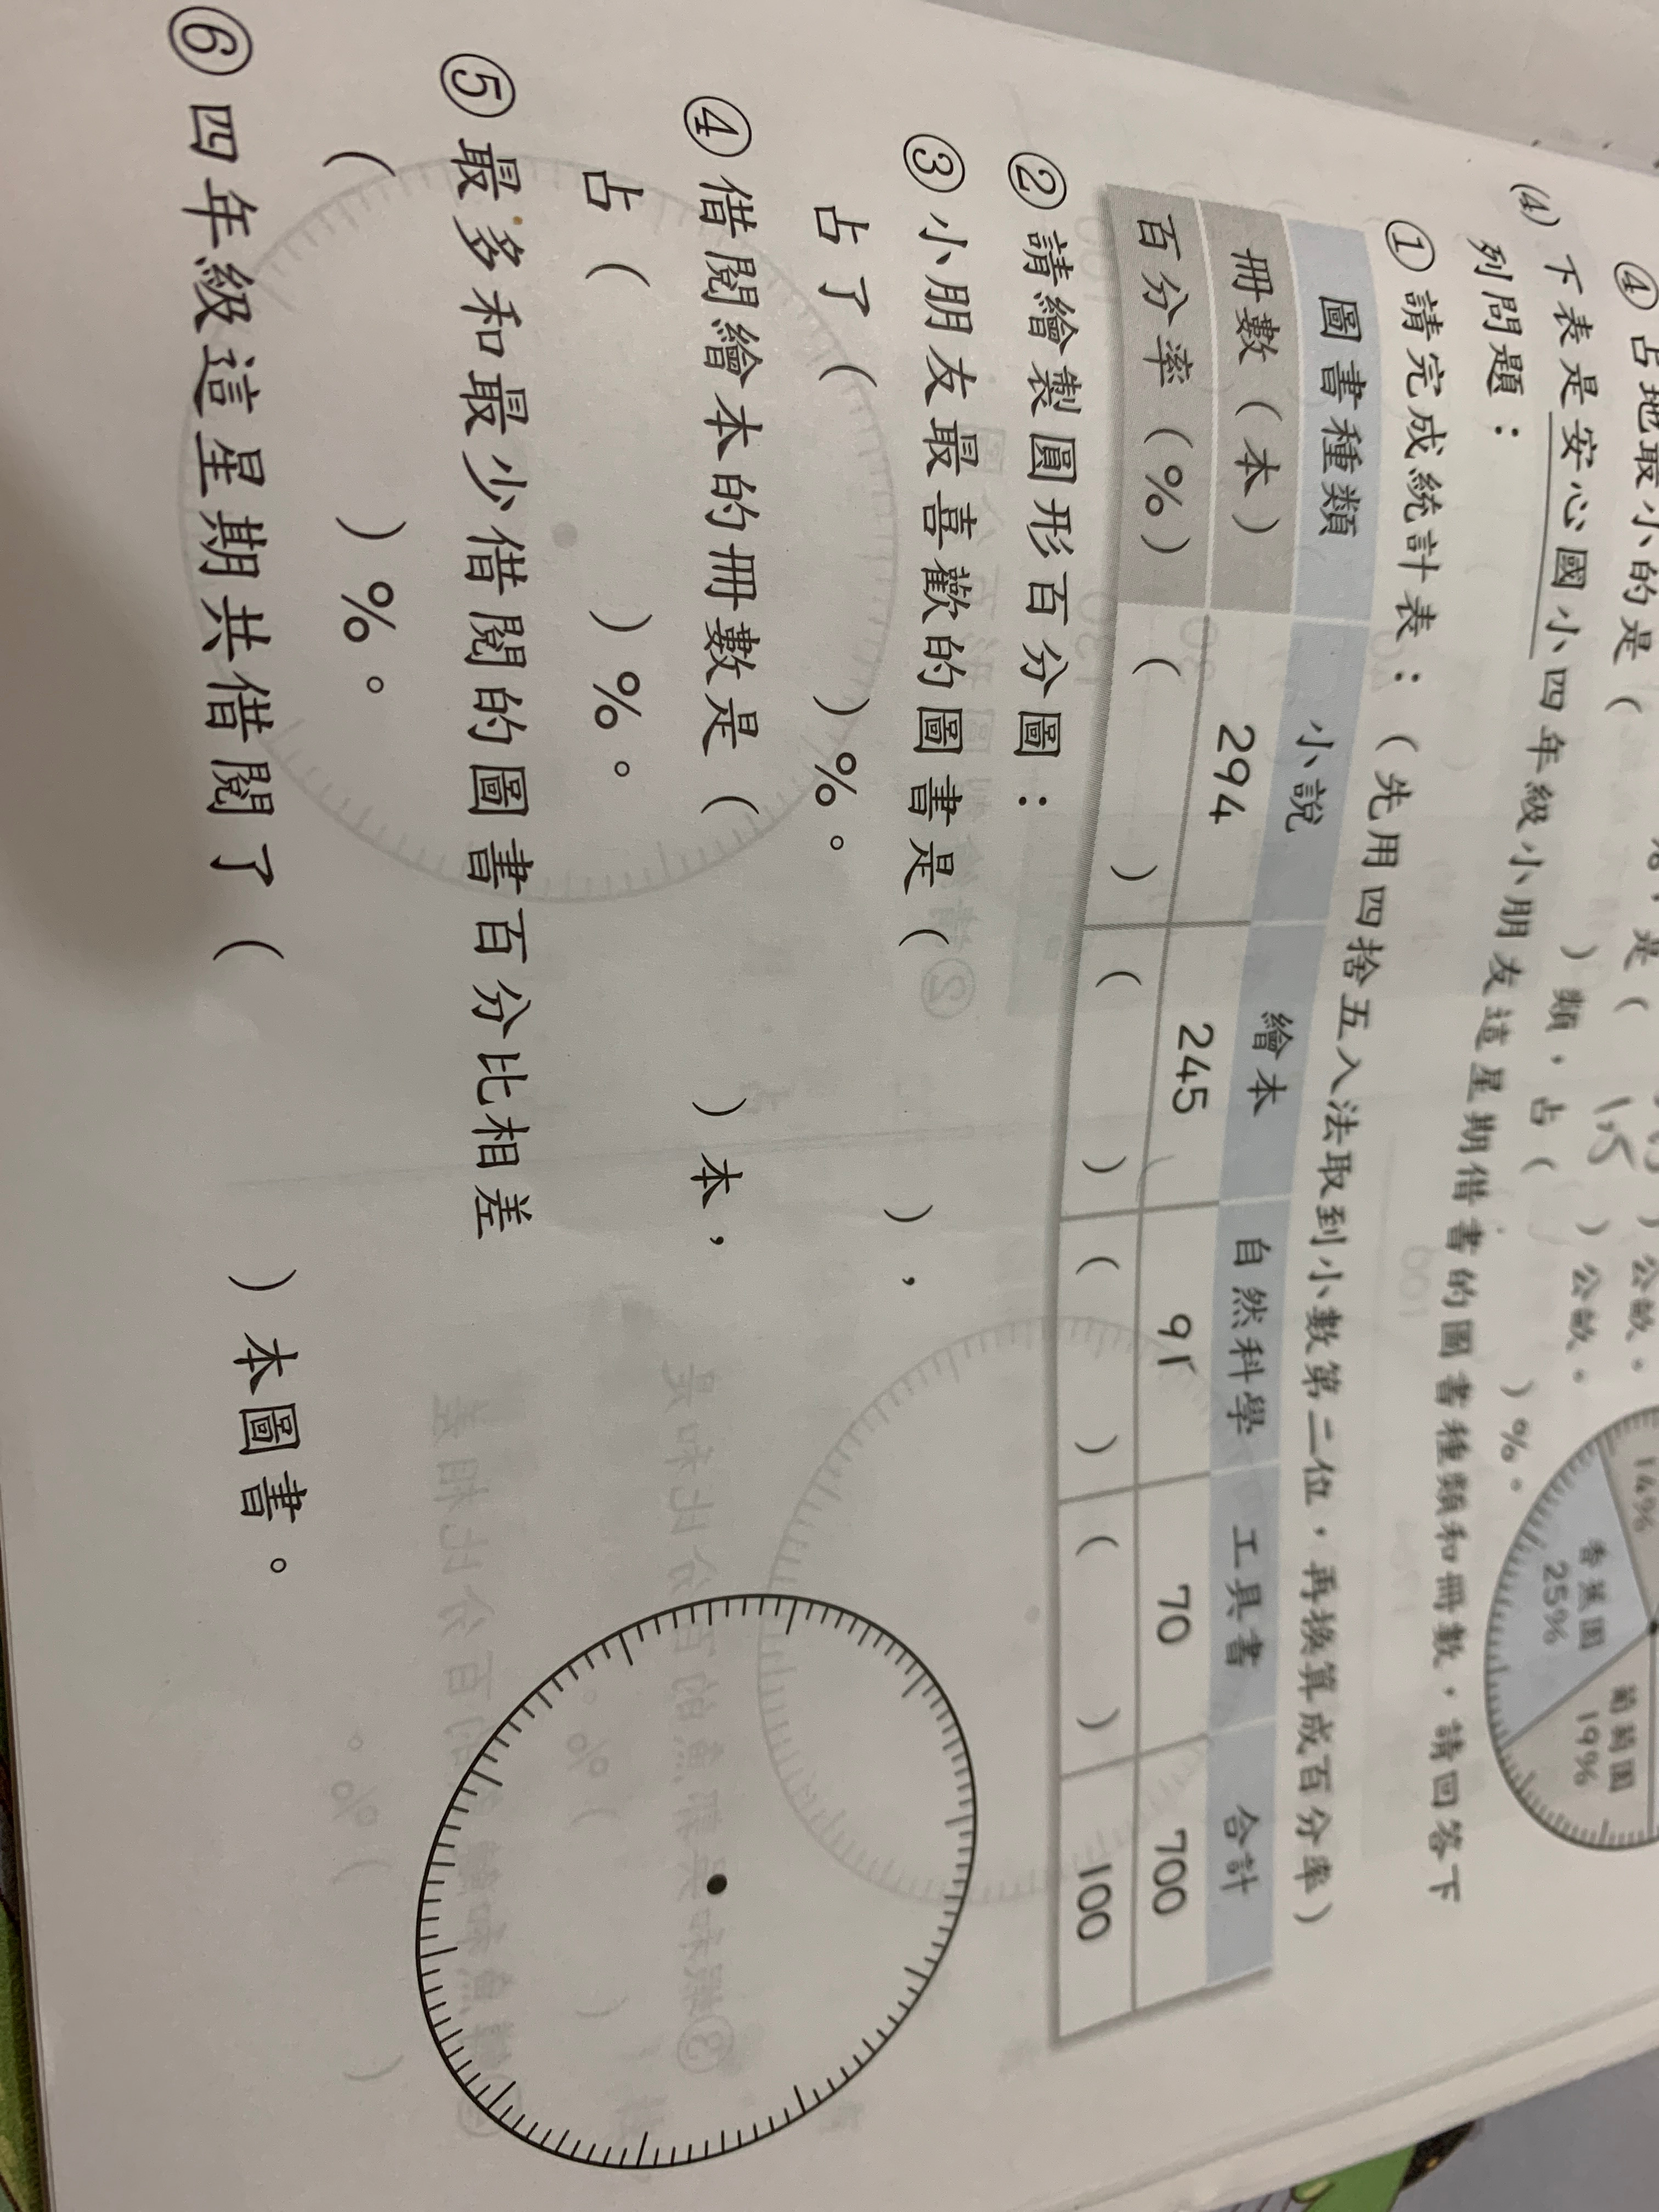 ④占地最小的是(　　)類，占(　　)%。
是(　　)公畝。
1.5 )公畝。
14%
香蕉園
25%
葡萄園
19%
(4)下表是安心國小四年級小朋友這星期借書的圖書種類和冊數，請回答下
列問題：
①請完成統計表：(先用四捨五入法取到小數第二位，再換算成百分率)
圖書種類 小說 繪本 自然科學 工具書 合計
冊數(本) 294 245 91 70 700
百分率(%) (　　) (　　) (　　) (　　) 100
②請繪製圓形百分圖：
③小朋友最喜歡的圖書是(　　)，
占了(　　)%。
④借閱繪本的冊數是(　　)本，
占(　　)%。
⑤最多和最少借閱的圖書百分比相差
(　　)%。
⑥四年級這星期共借閱了(　　)本圖書。